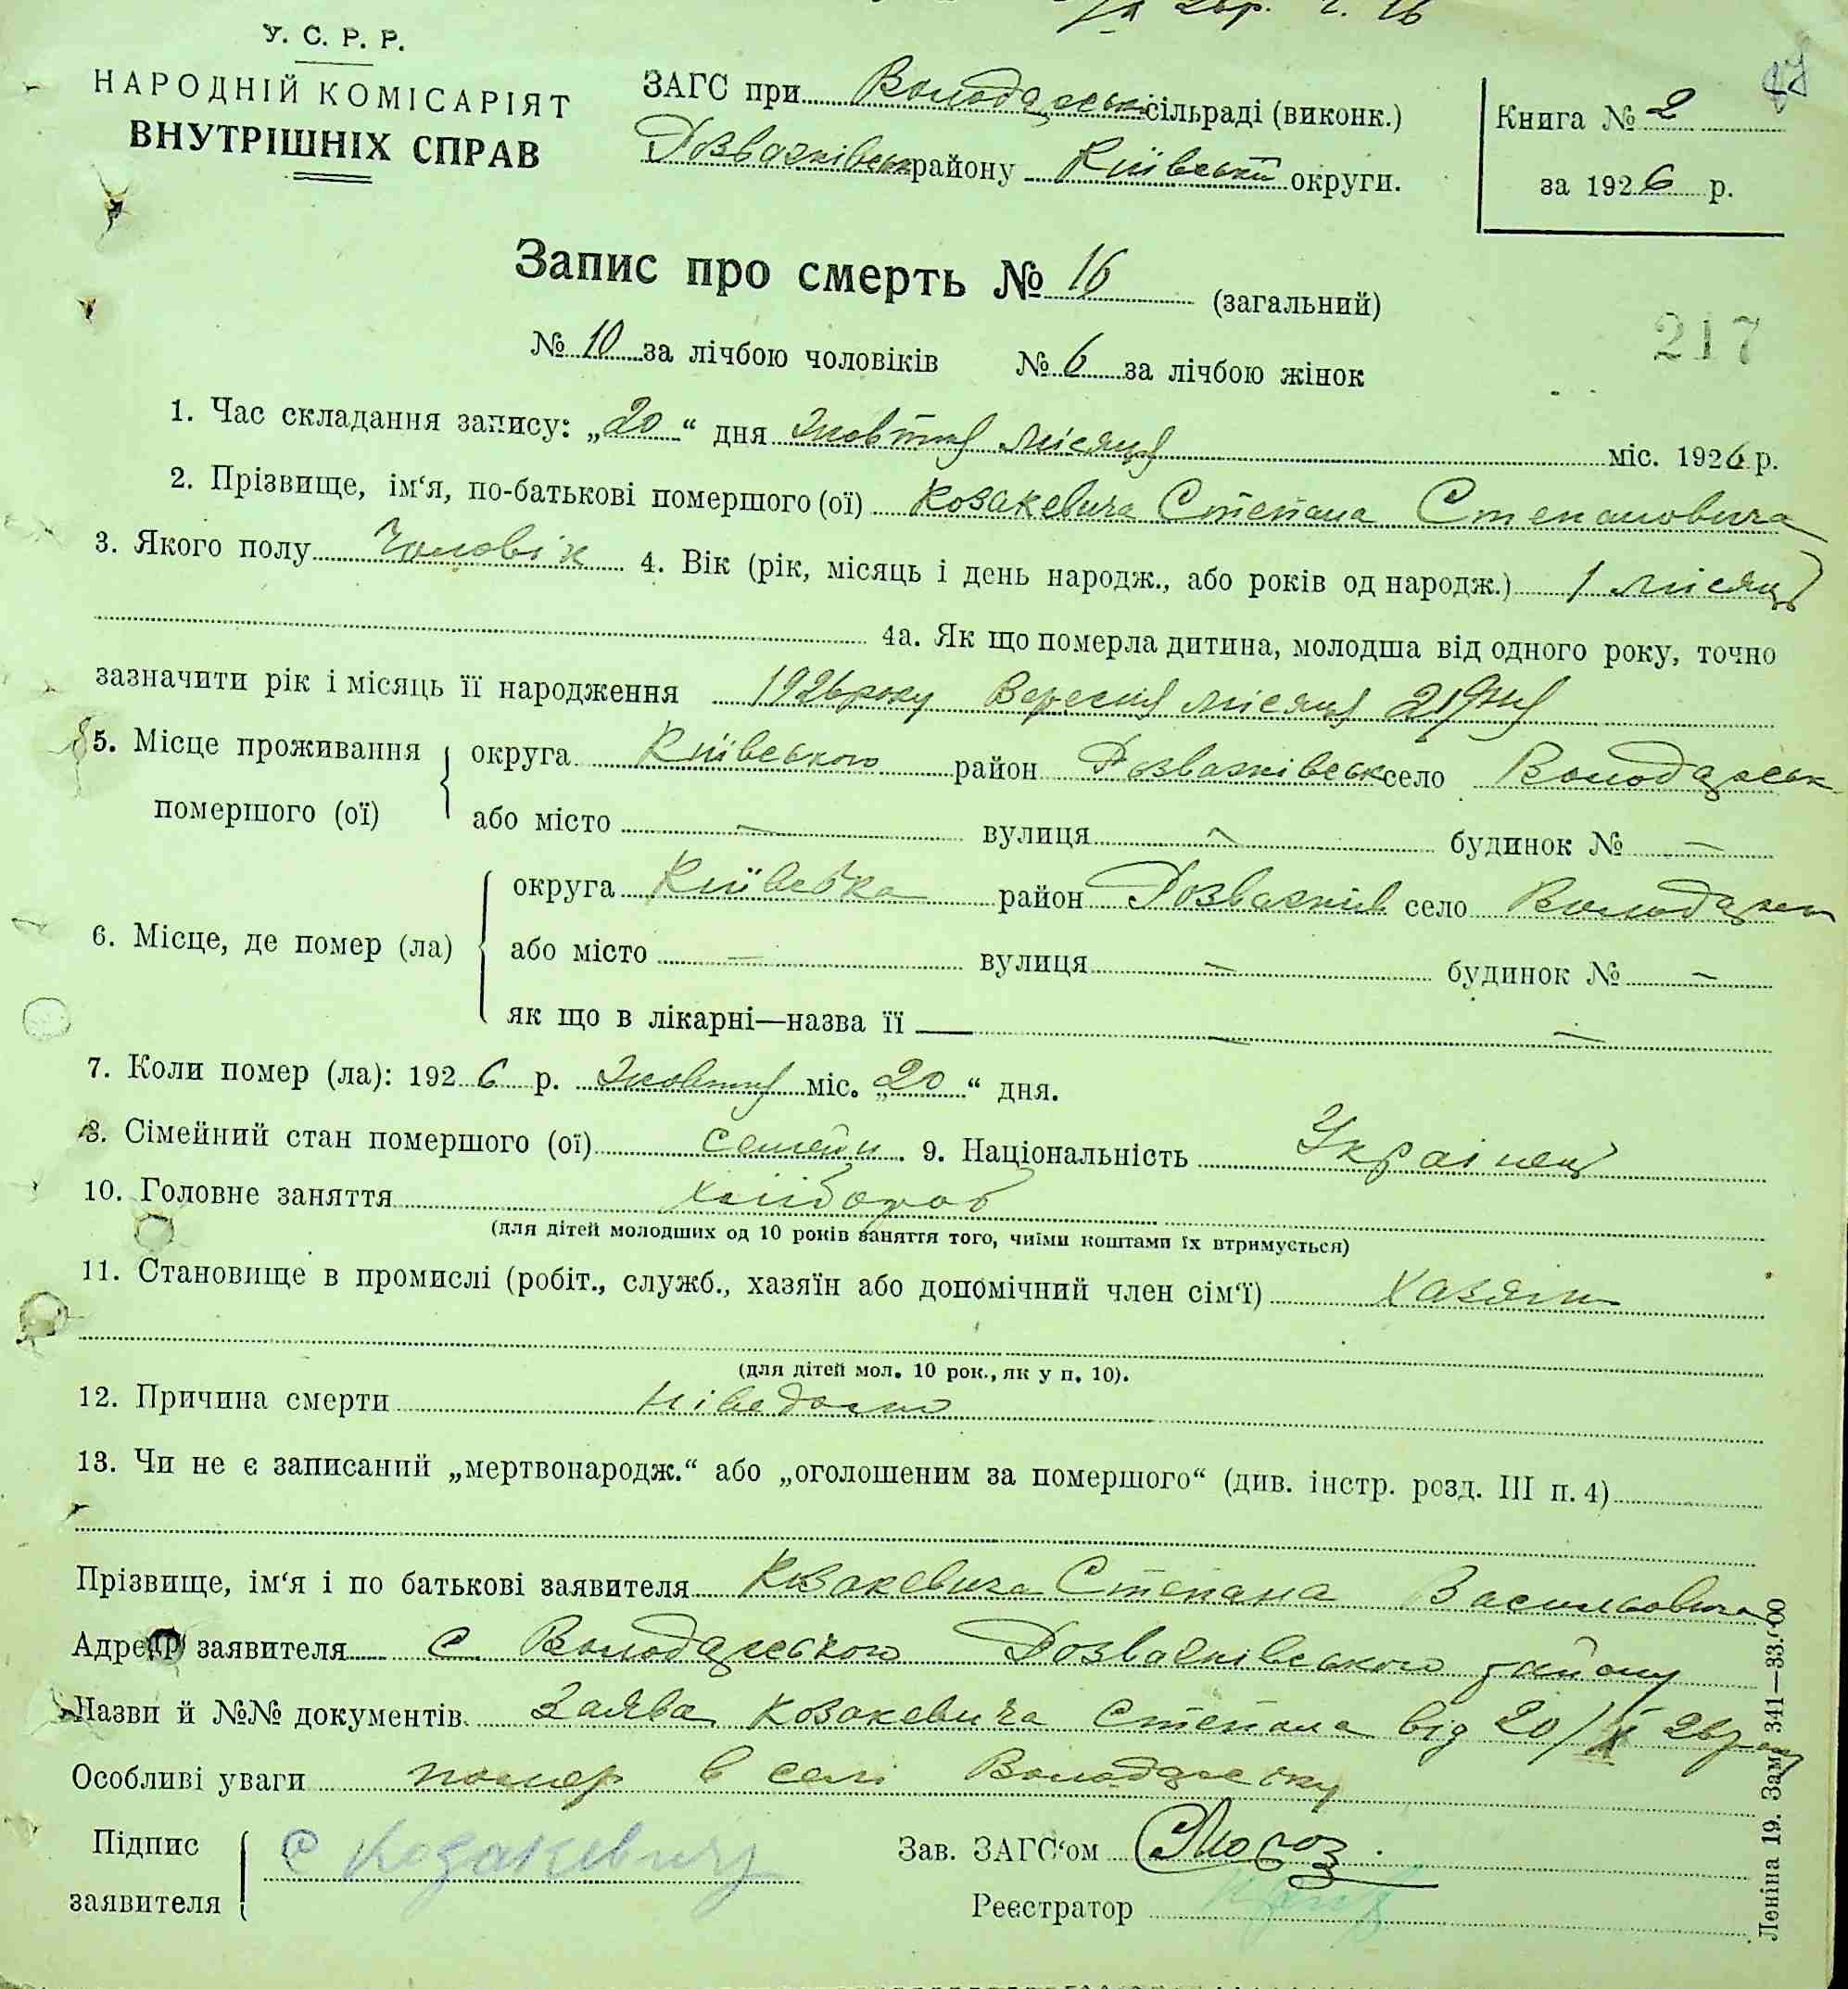 26р. ч. 16
У. С. Р. Р.
НАРОДНІЙ КОМІСАРІЯТ
ВНУТРІШНІХ СПРАВ
ЗАГС при Володарські сільраді (виконк.)
Розважівськ району Київської округи.
Книга № 2
за 1926 р.
Запис про смерть № 16 (загальний)
№ 10 за лічбою чоловіків № 6 за лічбою жінок
217
1. Час складання запису: „20“ дня Жовтня місяця міс. 1926 р.
2. Прізвище, ім‘я, по-батькові помершого (ої) Козакевича Степана Степановича
3. Якого полу Чоловік 4. Вік (рік, місяць і день народж., або років од народж.) 1 місяць
4а. Як що померла дитина, молодша від одного року, точно
зазначити рік і місяць її народження 1926 року Вересня місяця 21 дня
5. Місце проживання помершого (ої) округа Київського район Розважівськ село Володарськ
або місто — вулиця — будинок № —
6. Місце, де помер (ла) округа Київська район Розважів село Володарськ
або місто — вулиця — будинок № —
як що в лікарні—назва її — —
7. Коли помер (ла): 1926 р. Жовтня міс. „20“ дня.
8. Сімейний стан помершого (ої) семейн. 9. Національність Українец
10. Головне заняття хлібороб
(для дітей молодших од 10 років заняття того, чиїми коштами їх втримується)
11. Становище в промислі (робіт., служб., хазяїн або допомічний член сім‘ї) Хазяін
(для дітей мол. 10 рок., як у п. 10).
12. Причина смерти ніведомо
13. Чи не є записаний „мертвонародж.“ або „оголошеним за помершого“ (див. інстр. розд. III п. 4)
Прізвище, ім‘я і по батькові заявителя Козакевича Степана Васильовича
Адреса заявителя с. Володарського Розважівського району
Назви й №№ документів Заява Козакевича Степана від 20/X 26 року
Особливі уваги помер в селі Володарську
Підпис заявителя С Козакевич
Зав. ЗАГС‘ом Мороз.
Реєстратор
Леніна 19. Зам. 341—33.000